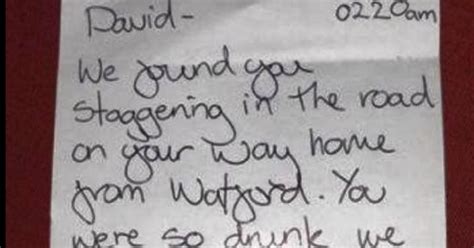 David- 0220am
We found you
staggering in the road
on your way home
from Watford. You
were so drunk we